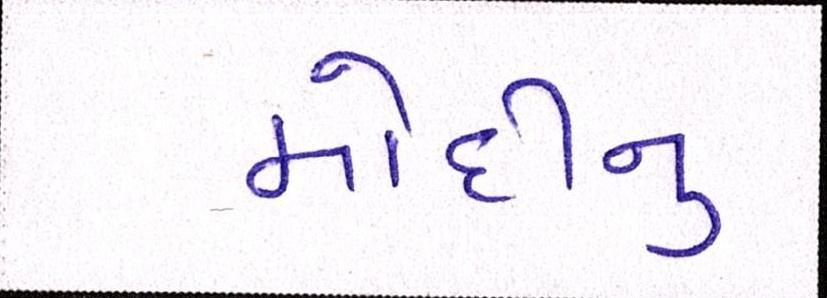 મોદીનુ